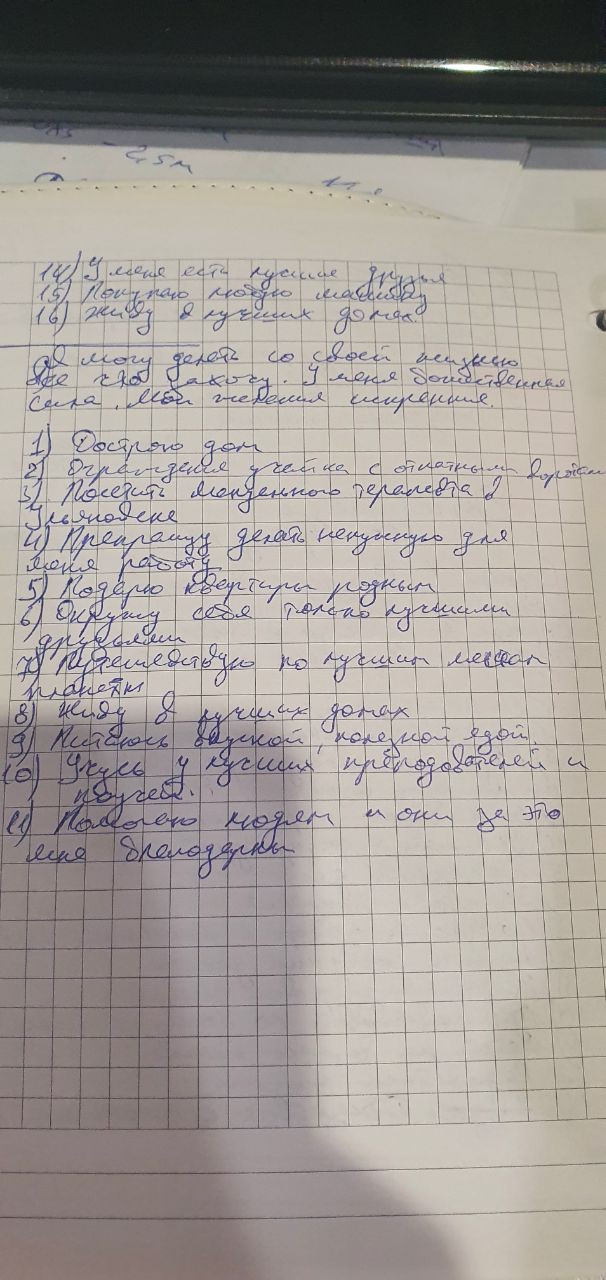 2,5м
14) У меня есть лучшие друзья
15) Покупаю любую машину
16) Живу в лучших домах.
Я могу делать со своей жизнью
все что захочу. У меня божественная
сила. Мои желания искренние.
1) Дострою дом
2) Ограждения участка с откатными воротами
3) Посетить терапевта в
Ульяновске
4) Прекращу делать ненужную для
меня работу
5) Подарю квартиры родным
6) Окружу себя только лучшими
друзьями
7) Путешествую по лучшим местам
планеты
8) Живу в лучших домах
9) Питаюсь вкусной, полезной едой.
10) Учусь у лучших преподователей и
11) Помогаю людям и они за это
мне благодарны